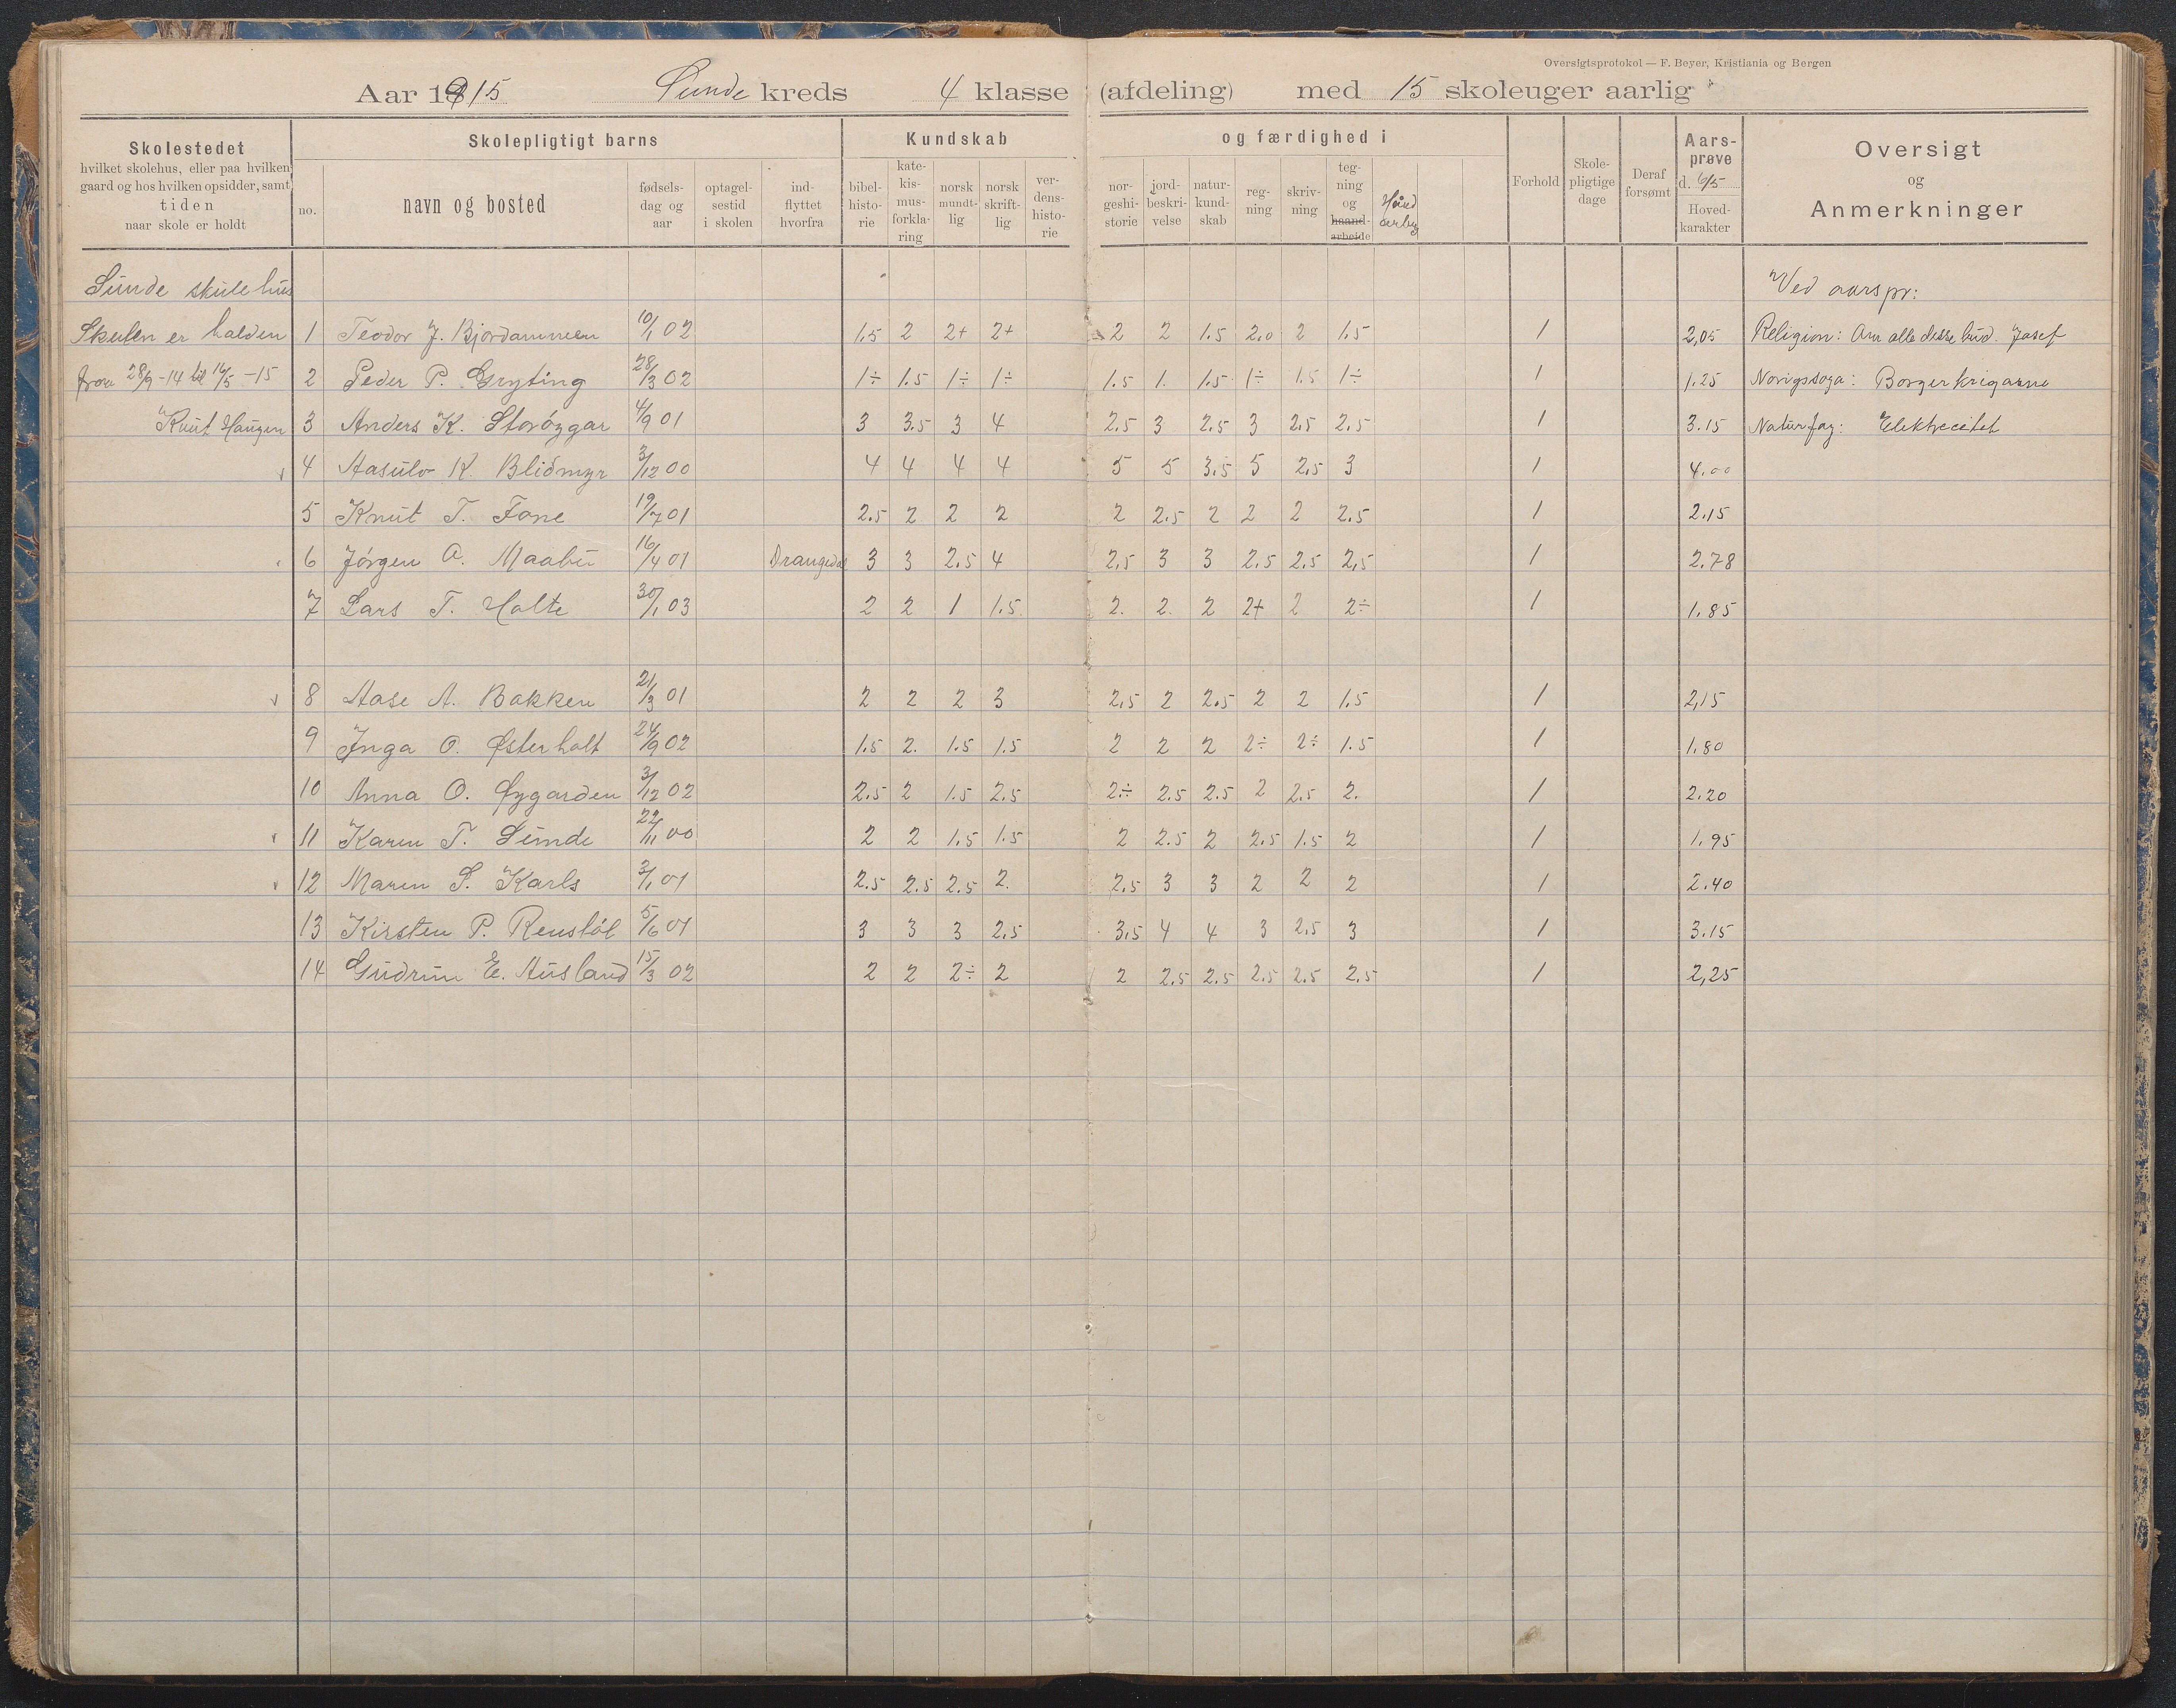 Oversigtsprotokol — F. Beyer, Kristiania og Bergen
Aar 1915 Sunde kreds 4 klasse (afdeling) med 15 skoleuger aarlig
Skolestedet
hvilket skolehus, eller paa hvilken
gaard og hos hvilken opsidder, samt
tiden
naar skole er holdt
Skolepligtigt barns
no.
navn og bosted
fødsels-
dag og
aar
optagel-
sestid
i skolen
ind-
flyttet
hvorfra
Kundskab
bibel-
histo-
rie
kate-
kis-
mus-
forkla-
ring
norsk
mundt-
lig
norsk
skrift-
lig
ver-
dens-
histo-
rie
og færdighed i
nor-
geshi-
storie
jord-
beskri-
velse
natur-
kund-
skab
reg-
ning
skriv-
ning
teg-
ning
og
haand-
arbeide
Forhold
Skole-
pligtige
dage
Deraf
forsømt
Aars-
prøve
d. 6/5
Hoved-
karakter
Oversigt
og
Anmerkninger
Sunde skulehus Ved aarspr:
Skulen er halden 1 Teodor J. 10/1 02 1.5 2 2+ 2+ 2 2 1.5 2.0 2 1.5 1 2,05 Religion: alle desse Josef
fraa 28/9-14 til 16/5-15 2 Peder P. Gryting 28/3 02 1÷ 1.5 1÷ 1÷ 1.5 1. 1.5 1÷ 1.5 1÷ 1 1.25 Norigssoga: Borgerkrigarne
Knut Haugen 3 Anders K. Storøygar 4/9 01 3 3.5 3 4 2.5 3 2.5 3 2.5 2.5 1 3.15 Naturfag: Elektrecitet
4 Aasulv K. Blidmyr 3/12 00 4 4 4 4 5 5 3.5 5 2.5 3 1 4.00
5 Knut T. Fone 19/7 01 2.5 2 2 2 2 2.5 2 2 2 2.5 1 2.15
6 Jørgen A. Maabu 16/4 01 Drangedal 3 3 2.5 4 2,5 3 3 2.5 2.5 2,5 1 2.78
7 Lars T. Holte 30/1 03 2 2 1 1.5. 2. 2. 2 2+ 2 2÷ 1 1.85
8 Aase A. Bakken 21/3 01 2 2 2 3 2,5 2 2.5 2 2 1.5 1 2,15
9 Inga O. Østerholt 24/9 02 1.5 2. 1.5 1.5 2 2 2 2÷ 2÷ 1.5 1 1.80
10 Anna O. Øygarden 3/12 02 2.5 2 1.5 2.5 2÷ 2.5 2.5 2 2.5 2. 1 2.20
11 Karen T. Sunde 22/11 00 2 2 1.5 1.5 2 2.5 2 2.5 1.5 2 1 1.95
12 Maren S. Karls 3/1 01 2.5 2.5 2.5 2. 2.5 3 3 2 2 2 1 2.40
13 Kirsten P. Renstøl 5/6 01 3 3 3 2.5 3.5 4 4 3 2.5 3 1 3.15
14 Gudrun E. Ausland 15/3 02 2 2 2÷ 2 2 2.5 2.5 2.5 2.5 2.5 1 2,25